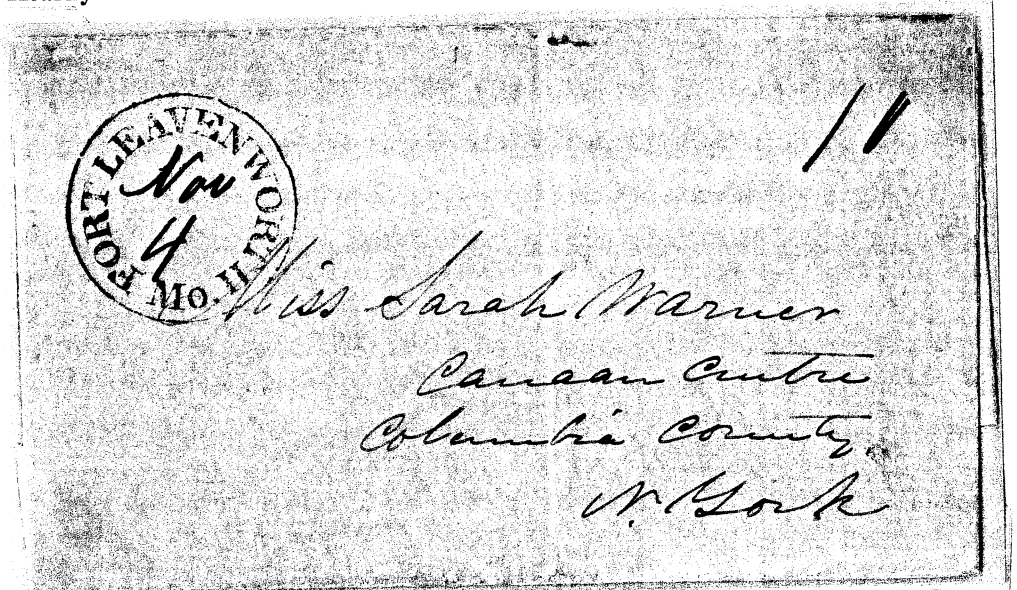 FORT LEAVENWORTH MO.
Nov
4
Miss Sarah Warner
Canaan Centre
Columbia County
N. York